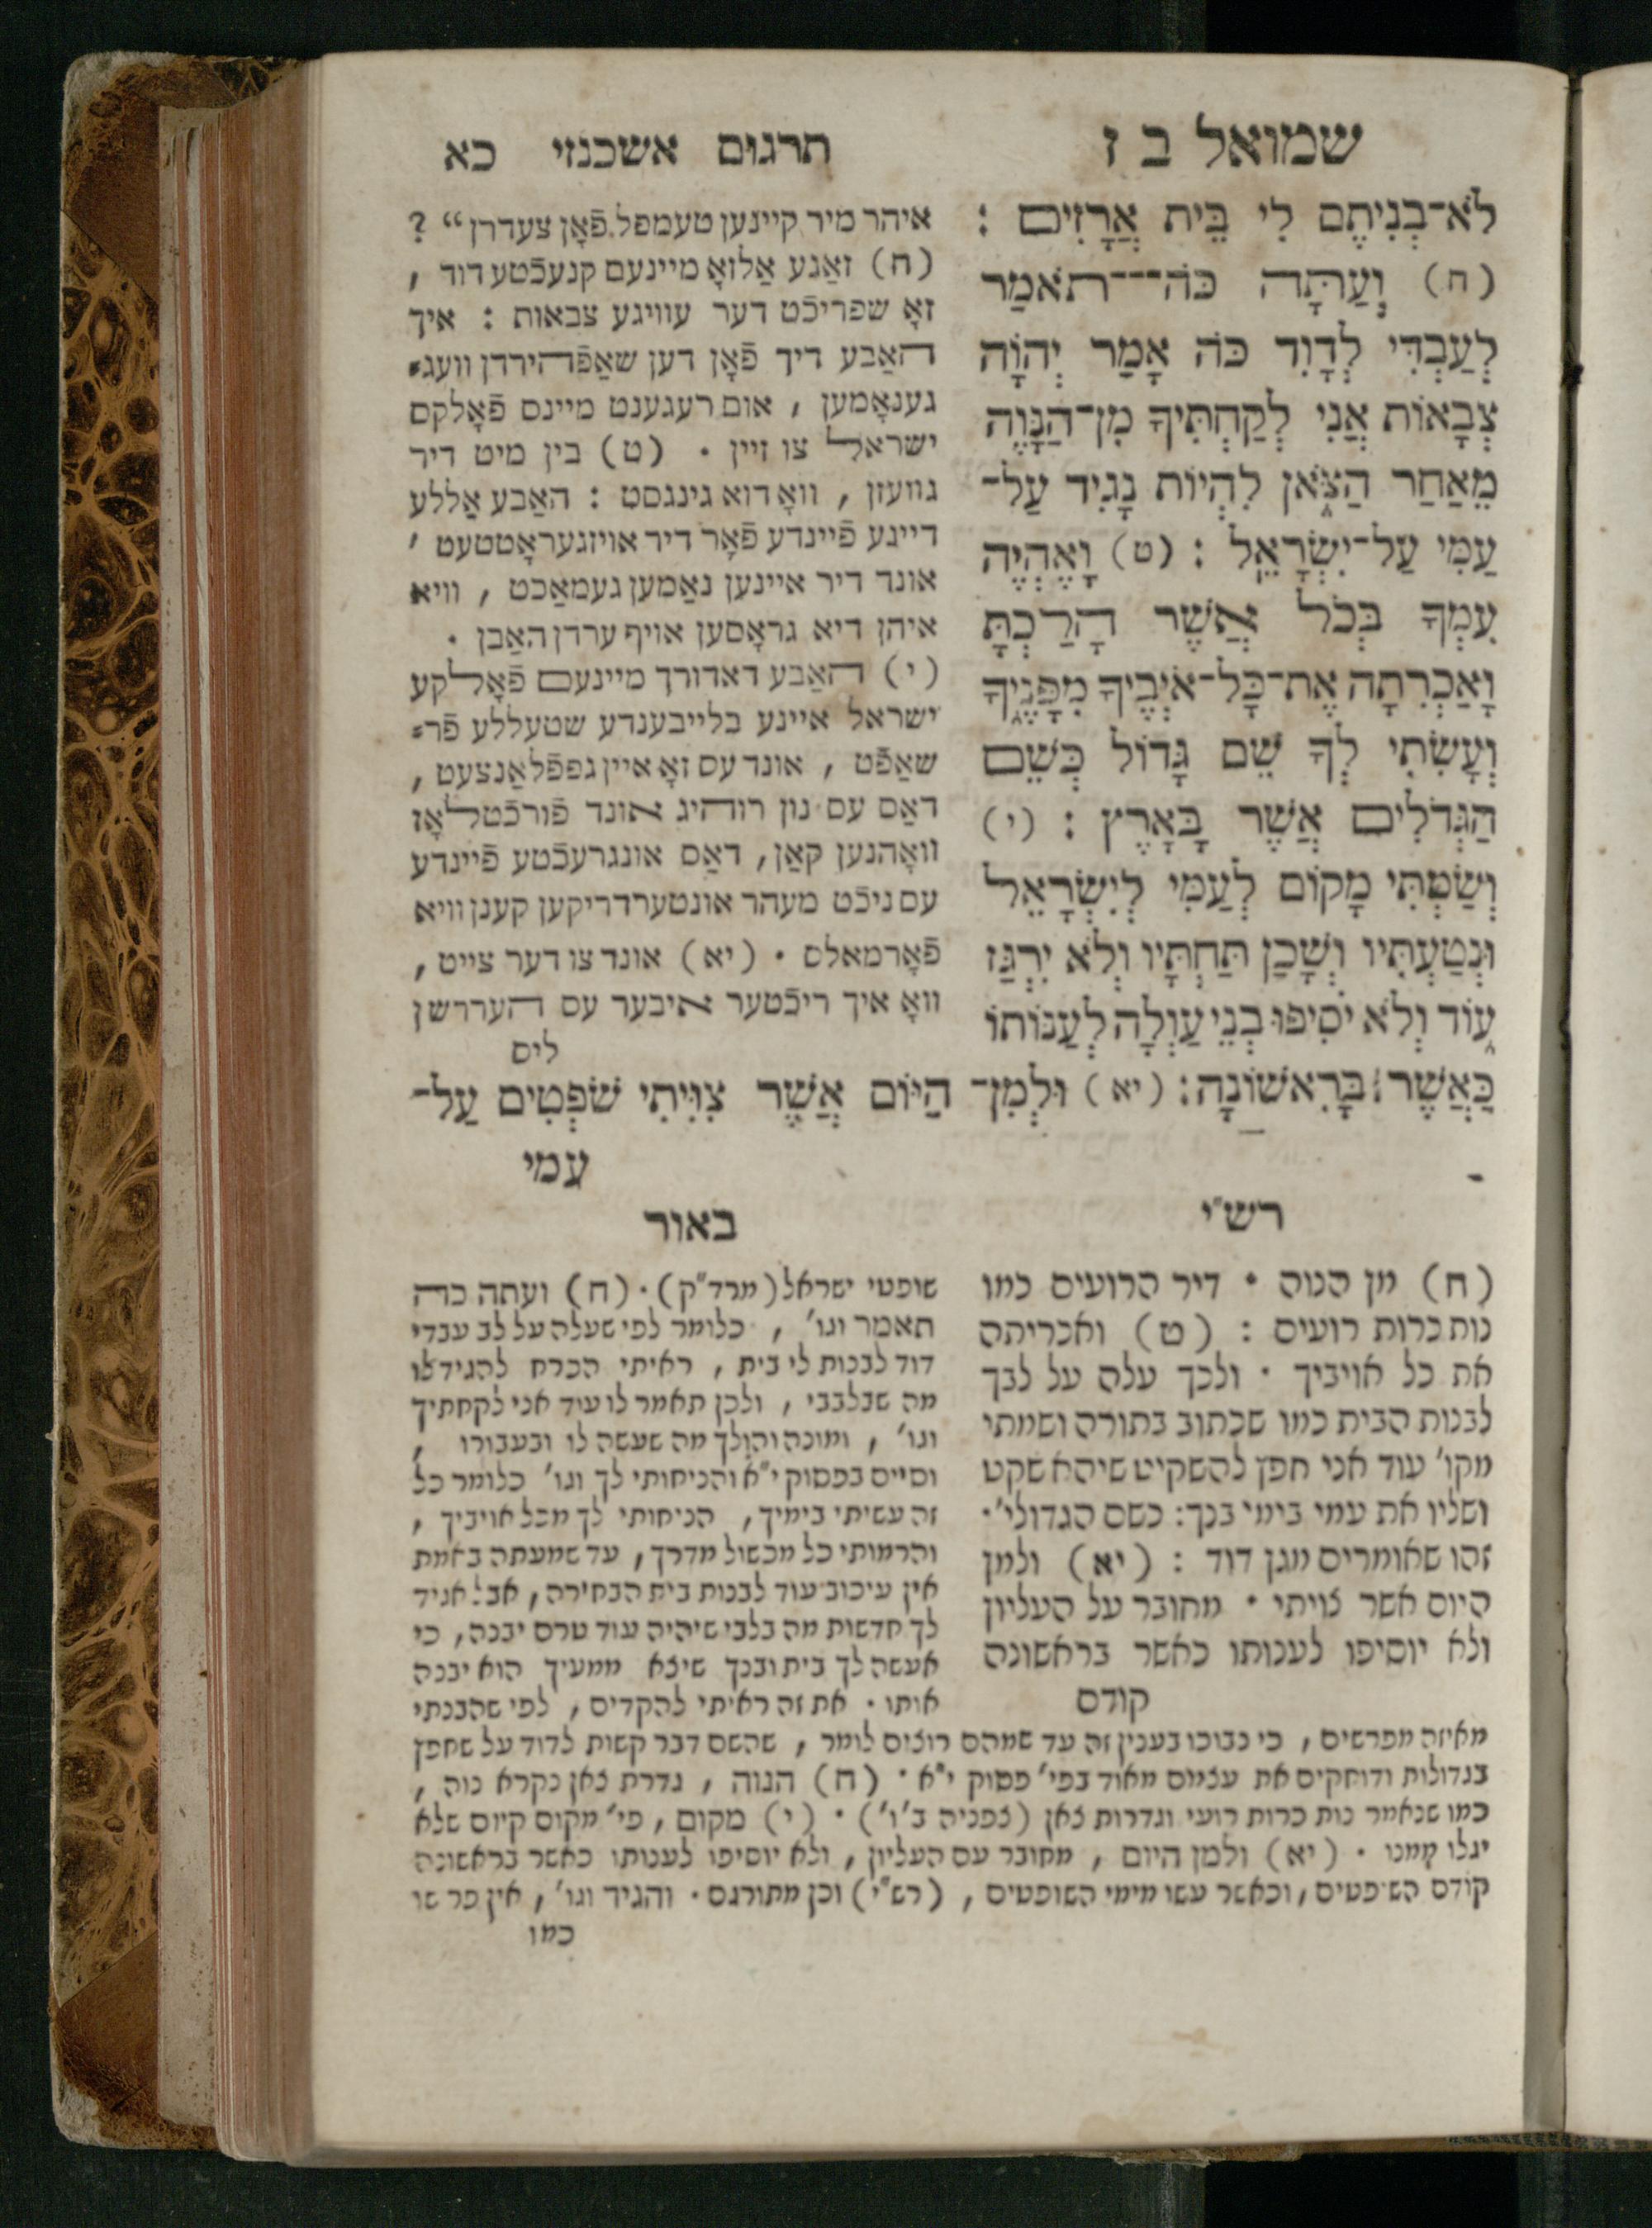 שמואל ב ז
תרגום אשכנזי כא
לֹא־בְנִיתֶם לִי בֵּית אֲרָזִים :
(ח) וְעַתָּה כֹּה־־־תֹאמַר
לְעַבְדִּי לְדָוִד כֹּה אָמַר יְהוָֹה
צְבָאוֹת אֲנִי לְקַחְתִּיךָ מִן־הַנָּוֶה
מֵאַחַר הַצֹּאן לִהְיוֹת נָגִיד עַל־
עַמִּי עַל־יִשְׂרָאֵל : (ט) וָאֶהְיֶה
עִמְּךָ בְּכֹל אֲשֶׁר הָלַכְתָּ
וָאַכְרִתָה אֶת־כָּל־אֹיְבֶיךָ מִפָּנֶיךָ
וְעָשִׂתִי לְךָ שֵׁם גָּדוֹל כְּשֵׁם
הַגְּדֹלִים אֲשֶׁר בָּאָרֶץ : (י)
וְשַׂמְתִּי מָקוֹם לְעַמִּי לְיִשְׂרָאֵל
וּנְטַעְתִּיו וְשָׁכַן תַּחְתָּיו וְלֹא יִרְגַּז
עוֹד וְלֹא יֹסִיפוּ בְנֵי עַוְלָה לְעַנּוֹתוֹ
כַּאֲשֶׁר בָּרִאשׁוֹנָה : (יא) וּלְמִן־ הַיּוֹם אֲשֶׁר צִוִּיתִי שֹׁפְטִים עַל־
עמי
איהר מיר קיינען טעמפל פֿאָן צעדרן“ ?
(ח) זאַגע אַלזאָ מיינעם קנעכֿטע דוד ,
זאָ שפריכֿט דער עוויגע צבאות : איך
האַבע דיך פֿאָן דען שאַפֿהירדן וועג⸗
גענאָמען , אום רעגענט מיינס פֿאָלקס
ישראל צו זיין . (ט) בין מיט דיר
גוועזן , וואָ דוא גינגסט : האַבע אַללע
דיינע פֿיינדע פֿאָר דיר אויזגעראָטטעט ,
אונד דיר איינען נאַמען געמאַכט , וויא
איהן דיא גראָסען אויף ערדן האַבן .
(י) האַבע דאדורך מיינעם פֿאָלקע
ישראל איינע בלייבענדע שטעללע פֿר⸗
שאַפֿט , אונד עס זאָ איין גפפֿלאַנצעט ,
דאַס עס נון רוהיג אונד פֿורכֿטלאָז
וואָהנען קאַן , דאַס אונגרעכֿטע פֿיינדע
עס ניכֿט מעהר אונטערדריקען קענן וויא
פֿאָרמאלס . (יא) אונד צו דער צייט ,
וואָ איך ריכֿטער איבער עס הערדשן
ליס
רש"י
(ח) מן הנוה . דיר הרועים כמו
נות כרות רועים : (ט) ואכריתה
את כל אויביך . ולכך עלה על לבך
לבנות הבית כמו שכתוב בתורה ושמתי
מקו' עוד אני חפץ להשקיט שיהא שקט
ושליו את עמי בימי בנך : כשם הגדולי'.
זהו שאומרים מגן דוד : (יא) ולמן
היום אשר צויתי . מחובר על העליון
ולא יוסיפו לענותו כאשר בראשונה
קודם
באור
שופטי ישראל (מרד"ק) . (ח) ועתה כה
תאמר וגו' , כלומר לפי שעלה על לב עבדי
דוד לבנות לי בית , ראיתי הכרח להגיד לו
מה שבלבבי , ולכן תאמר לו עוד אני לקחתיך
וגו' , ומונה והולך מה שעשה לו ובעבורו ,
וסיים בפסוק י"א והניחותי לך וגו' כלומר כל
זה עשיתי בימיך , הניחותי לך מכל אויביך ,
והרמותי כל מכשול מדרך , עד שמעתה באמת
אין עיכוב עוד לבנות בית הבחירה , אבל אגיד
לך חדשות מה בלבי שיהיה עוד טרם יבנה , כי
אעשה לך בית ובנך שיצא ממעיך הוא יבנה
אותו . את זה ראיתי להקדים , לפי שהבנתי
מאיזה מפרשים , כי נבוכו בענין זה עד שמהם רוצים לומר , שהשם דבר קשות לדוד על שחפץ
בגדולות ודוחקים את עצמם מאוד בפי' פסוק י"א . (ח) הנוה , גדרת צאן נקרא נוה ,
כמו שנאמר נות כרות רועי וגדרות צאן (צפניה ב'ו') . (י) מקום , פי' מקום קיום שלא
יגלו ממנו . (יא) ולמן היום , מחובר עם העליון , ולא יוסיפו לענותו כאשר בראשונה
קודם השופטים , וכאשר עשו מימי השופטים , (רש"י) וכן מתורגם . והגיד וגו' , אין פרשו
כמו